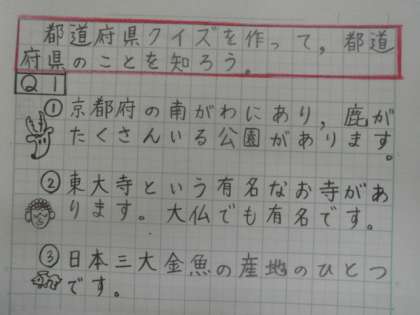 都道府県クイズを作って,都道
府県のことを知ろう。
Q1
①京都府の南がわにあり,鹿が
たくさんいる公園があります。
②東大寺という有名なお寺があ
ります。大仏でも有名です。
③日本三大金魚の産地のひとつ
です。